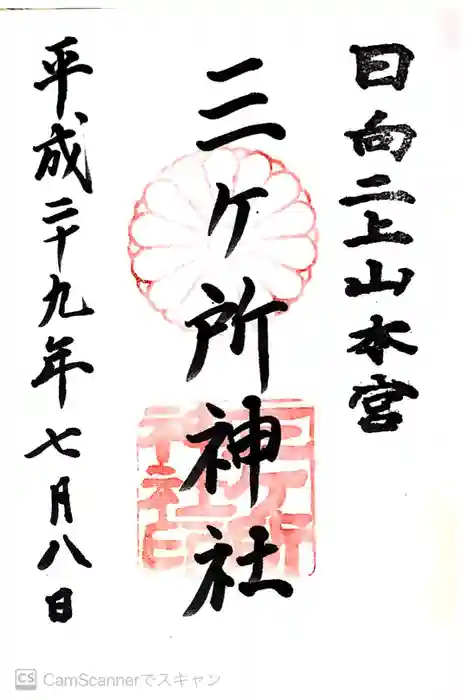 日向二上山本宮
三ケ所神社
平成二十九年七月八日
三ケ所神社印
CS CamScannerでスキャン